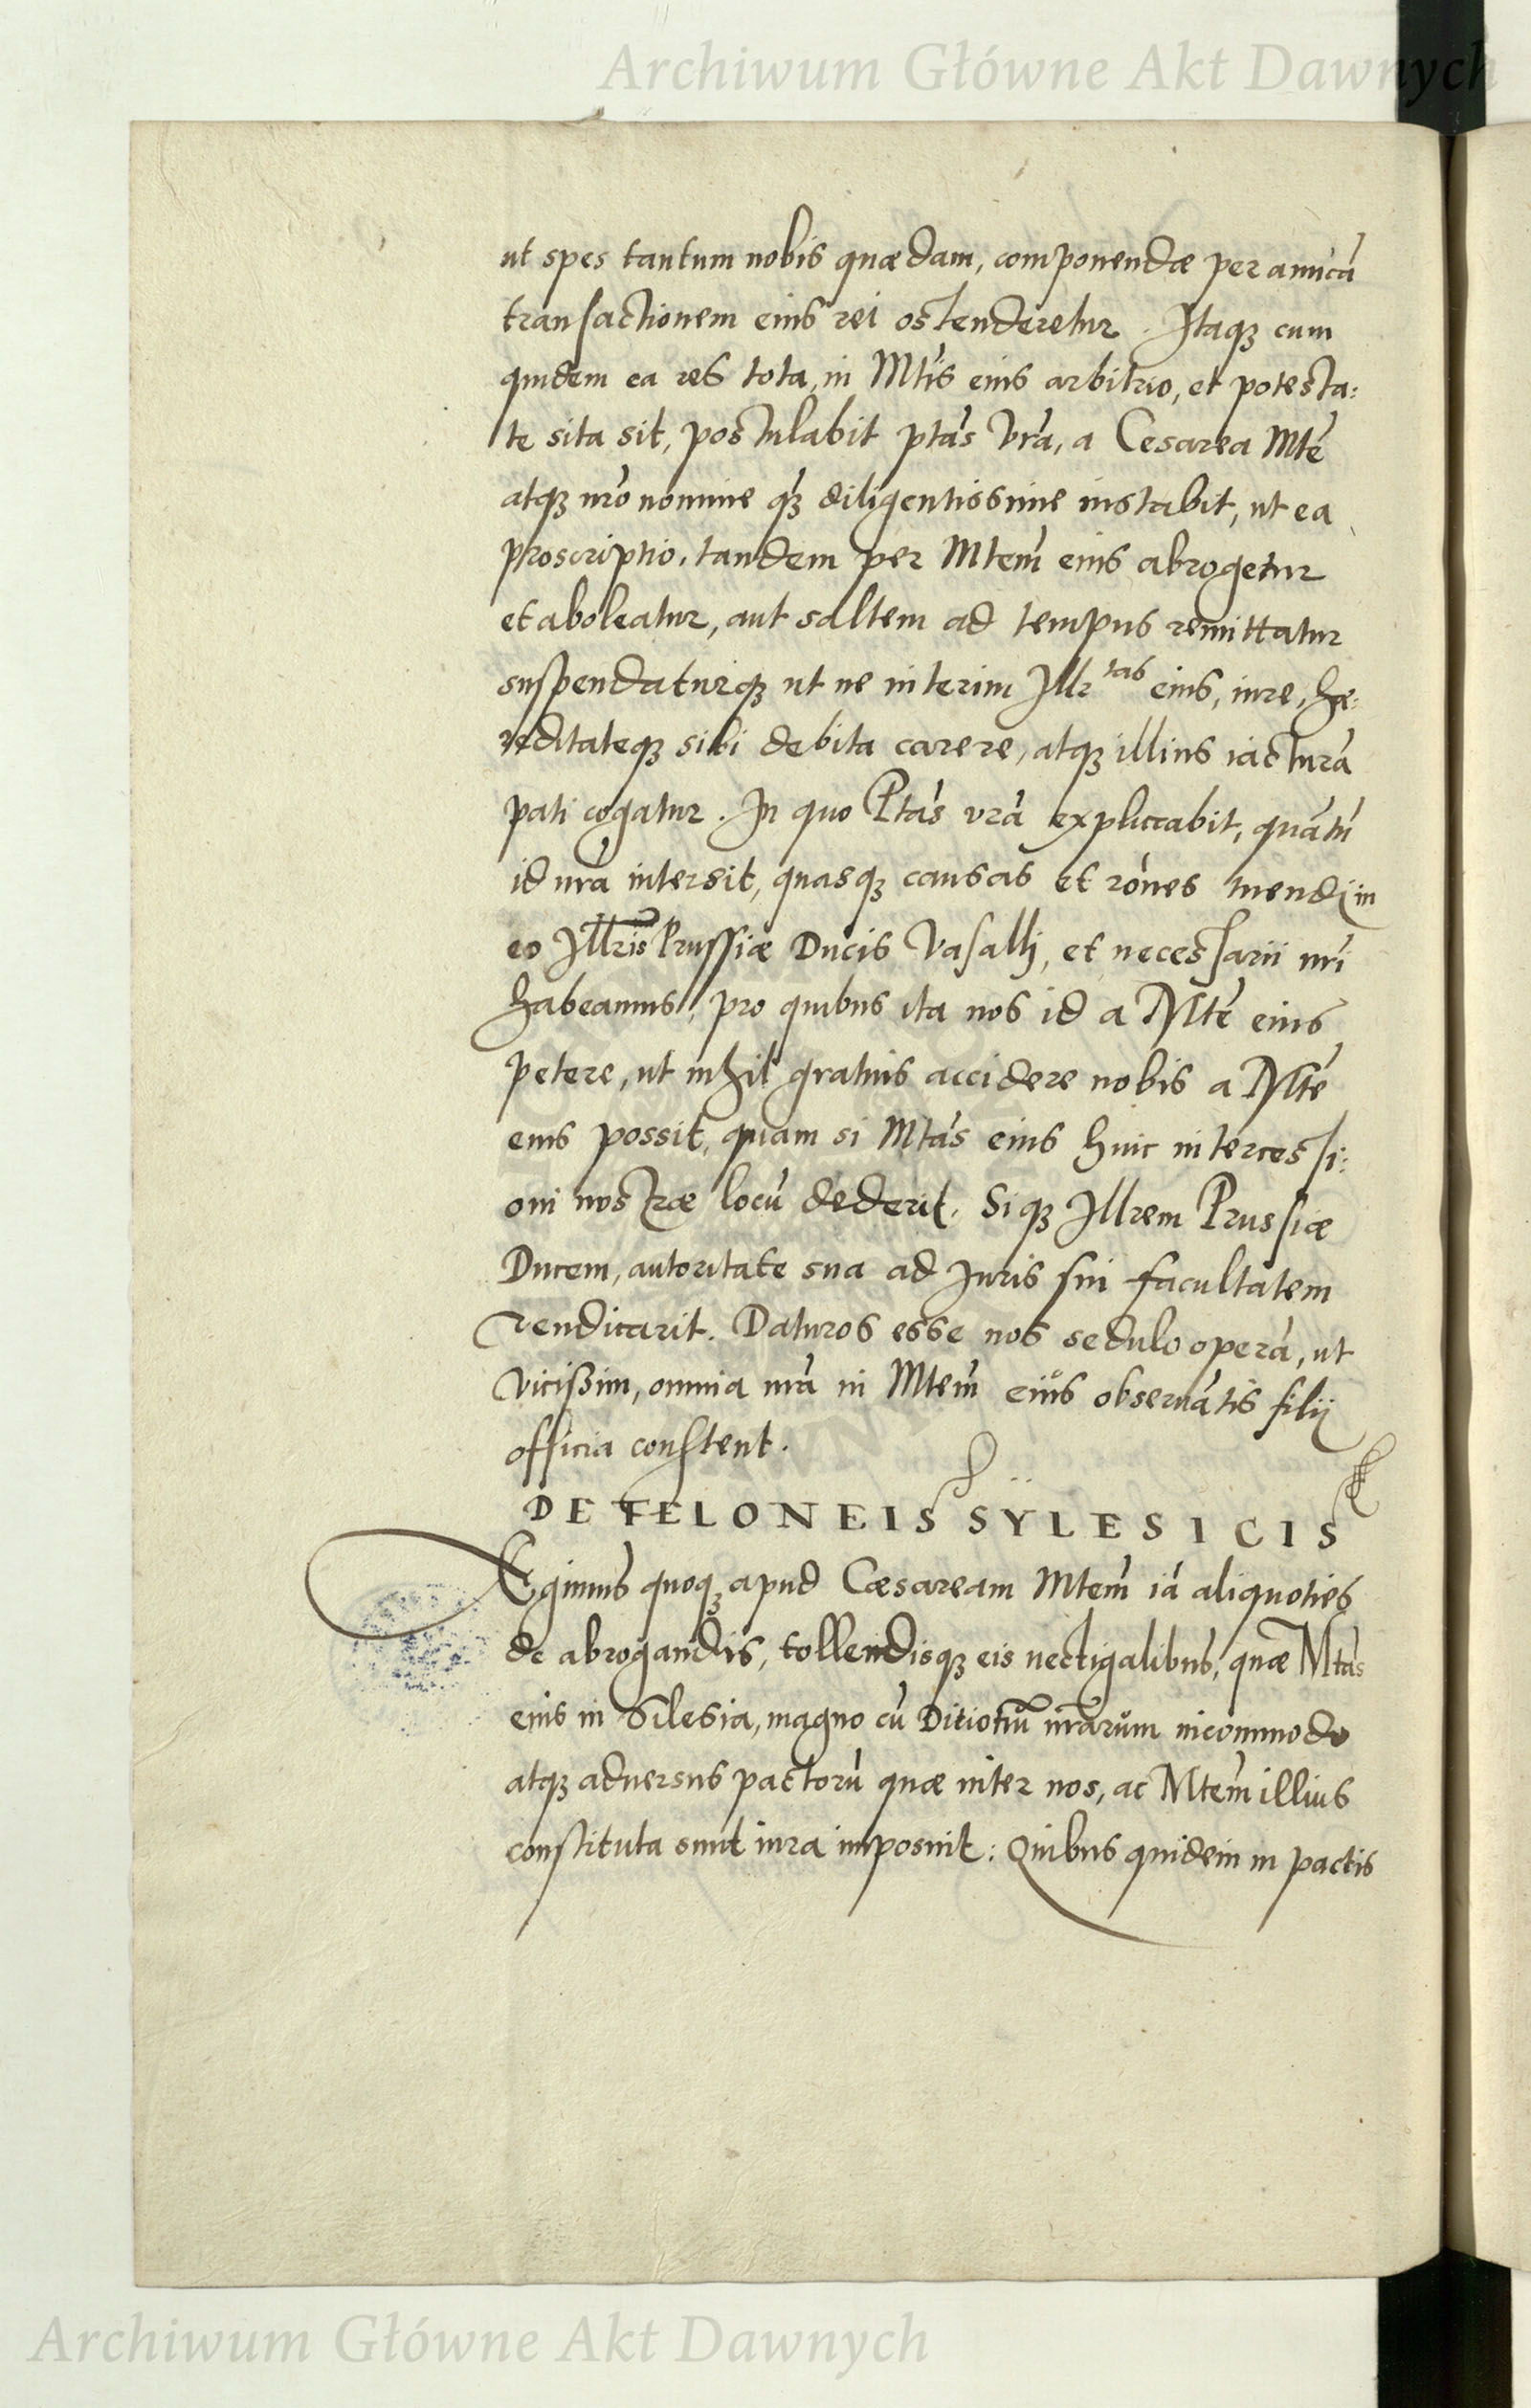 Archiwum Główne Akt Dawnych
ut spes tantum nobis quædam, componendæ per amicā
transactionem eius rei ostenderetur. Itaqȝ cum
quidem ea res tota, in Mtis eius arbitrio, et potesta:
te sita sit, postulabit ptas Vra, a Cesarea Mte
atqȝ nro nomine qȝ diligentissime instabit, ut ea
proscriptio, tandem per Mtem eius abrogetur
et aboleatur, aut saltem ad tempus remittatur
suspendaturqȝ ut ne interim Illr tas eius, iure, hæ:
reditateqȝ sibi debita carere, atqȝ illius iacturā
pati cogatur. In quo Ptas vra expliccabit, quātū
id nra intersit, quasqȝ causas et rones tuendi in
eo Illris Prussiæ Ducis Vasalli, et necessarii nri
habeamus, pro quibus ita nos id a Mte eius
petere, ut nihil gratius accidere nobis a Mte
eius possit, quam si Mtas eius huic intercessi:
oni nostræ locū dederit. Siqȝ Illrem Prussiæ
Ducem, autoritate sua ad Iuris sui facultatem
vendicarit. Daturos esse nos sedulo operā, ut
vicißim, omnia nra in Mtem eius obseruātis filij
officia constent.
DE TELONEIS SŸLESICIS
Egimus quoqȝ apud Cæsaream Mtem iā aliquoties
de abrogandis, tollendisqȝ eis uectigalibus, quæ Mtas
eius in Silesia, magno cū Ditionū nrarum incommodo
atqȝ aduersus pactorū quæ inter nos, ac Mtem illius
constituta sunt iura imposuit: Quibus quidem in pactis
Archiwum Główne Akt Dawnych